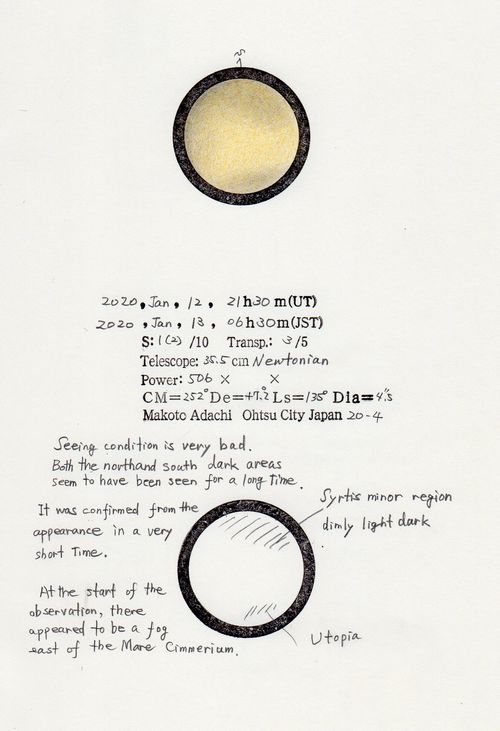 S
2020, Jan, 12, 21h30m(UT)
2020, Jan, 13, 06h30m(JST)
S: 1(2) /10 Transp.: 3/5
Telescope: 35.5 cm Newtonian
Power: 506 × ×
CM=252° De=+7.2° Ls=135° Dia=4".5
Makoto Adachi Ohtsu City Japan 20-4
Seeing condition is very bad.
Both the northand south dark areas
seem to have been seen for a long time.
It was confirmed from the
appearance in a very
short Time.
Syrtis minor region
dimly light dark
At the start of the
observation, there
appeared to be a fog
east of the Mare Cimmerium.
Utopia